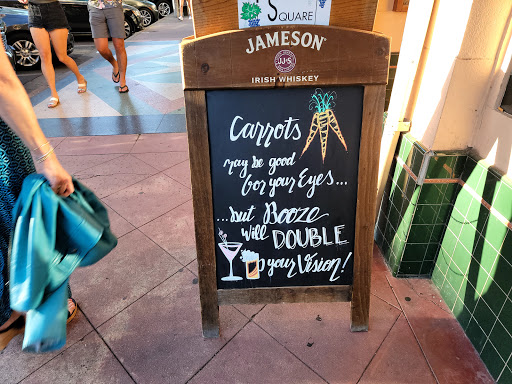 SQUARE
JAMESON
JJ&S
IRISH WHISKEY
Carrots
may be good
for your Eyes...
...but Booze
will DOUBLE
your Vision!